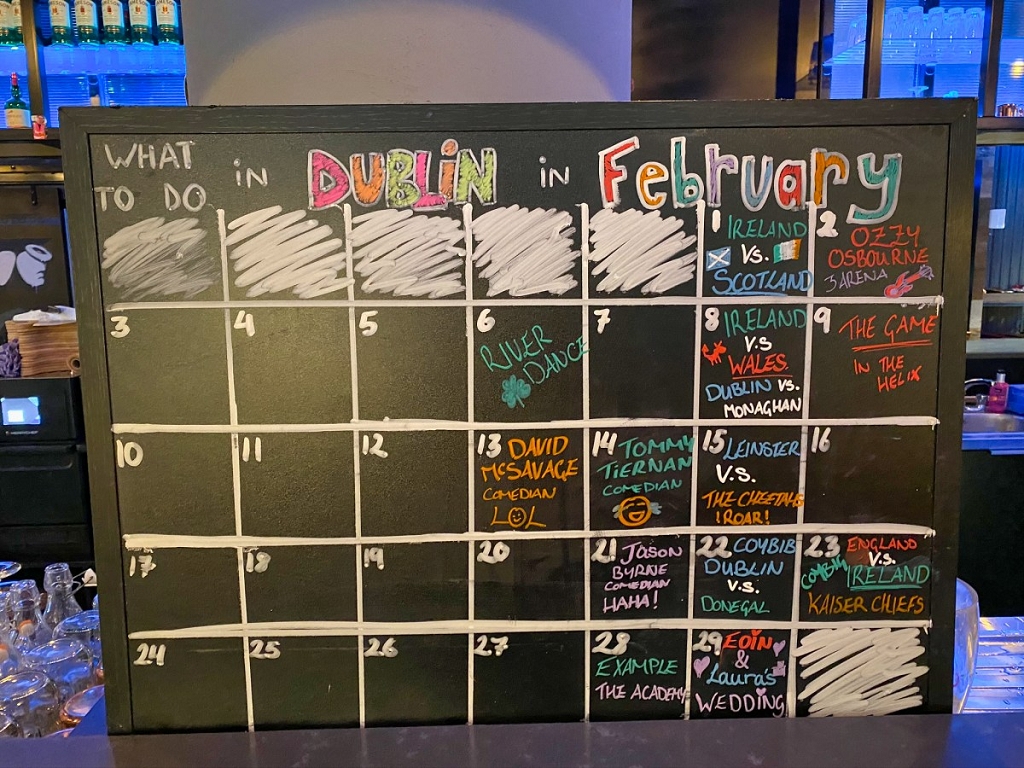 WHAT TO DO in DUBLiN in February
1 IRELAND
Vs.
SCOTLAND
2 OZZY
OSBOURNE
3 ARENA
3
4
5
6
RIVER
DANCE
7
8 IRELAND
V.S
WALES.
DUBLIN VS.
MONAGHAN
9 THE GAME
IN THE
HELIX
10
11
12
13 DAVID
McSAVAGE
COMEDIAN
LOL
14 TOMMY
TIERNAN
COMEDIAN
15 LEINSTER
V.S.
THE CHEETAHS
!ROAR!
16
17
18
19
20
21 JASON
BYRNE
COMEDIAN
HAHA!
22 COYBIB
DUBLIN
V.S.
DONEGAL
23 ENGLAND
V.S.
IRELAND
KAISER CHIEFS
24
25
26
27
28
EXAMPLE
THE ACADEMY
29 EOiN
&
Laura's
WEDDiNG